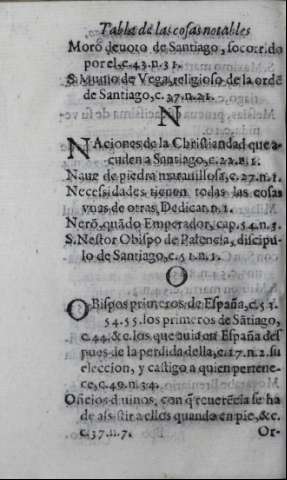 Tabla de las cosas notables
Morō deuoto de Santiago, socorrido
por el, c. 43. n. 31.
S. Munio de Vega, religioso de la ordē
de Santiago, c. 37. n. 21.
N
NAciones de la Christiandad que a-
cuden a Santiago, c. 22. n. 1.
Naue de piedra marauillosa, c. 27. n. 1.
Necessidades tienen todas las cosas
vnas de otras, Dedicat. n. 1.
Nerō, quādo Emperador, cap. 54. n. 3.
S. Nestor Obispo de Palencia, discipu-
lo de Santiago, c. 51. n. 1.
O
OBispos primeros de España, c. 51.
54. 55. los primeros de Sātiago,
c. 44. &c. los que auia en España des
pues de la perdida della, c. 17. n. 2. su
eleccion, y castigo a quien pertene-
ce, c. 49. n. 34.
Oficios diuinos, con q̄ reuerēcia se ha
de assistir a ellos quando en pie, &c.
c. 37. n. 7.
Or-